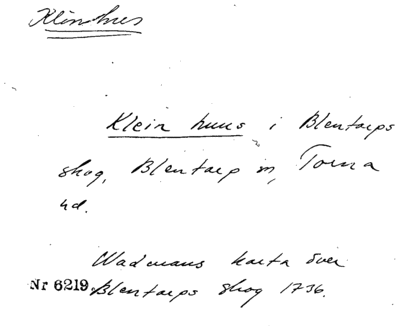 Klinhus
Klein huus i Blentarps
skog, Blentarp sn, Torna
hd.
Wadmans karta över
Nr 6219. Blentarps skog 1736.